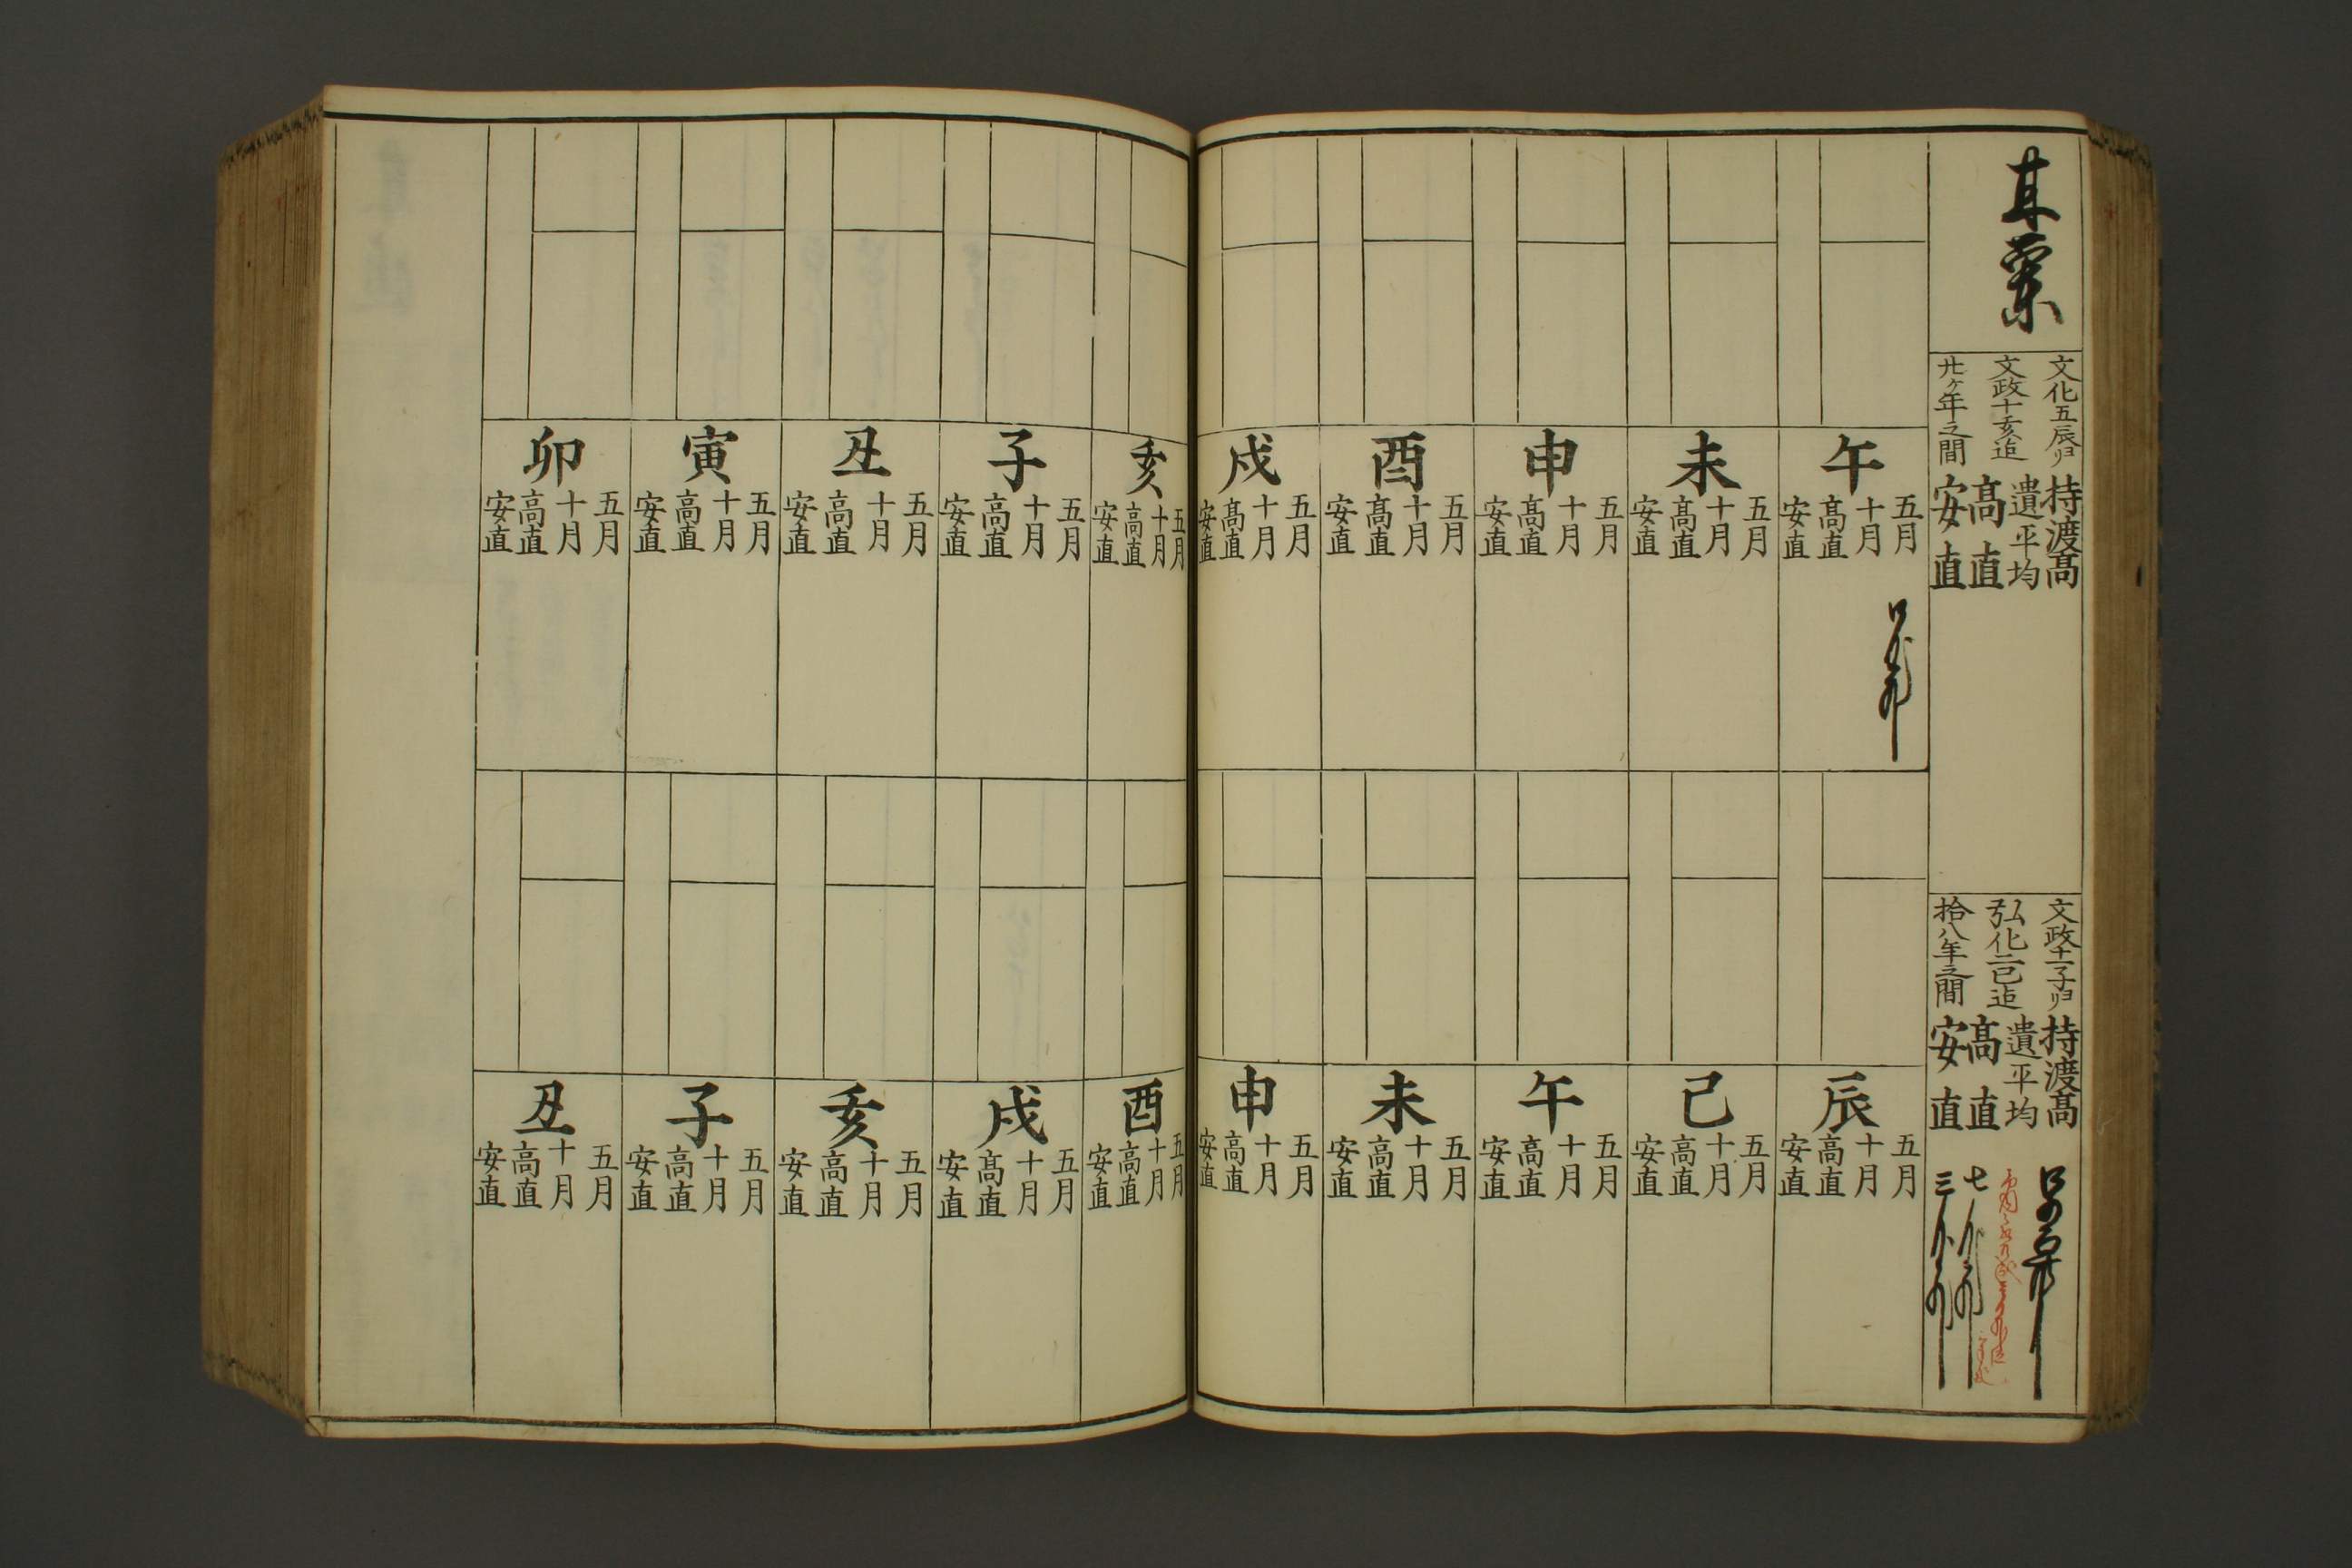 耳栗
文化五辰ゟ
文政十亥迄
廿ヶ年之間
持渡高
遣平均
高直
安直
文政十一子ゟ
弘化二巳迄
拾八年之間
持渡高
遣平均
高直
安直
午
五月
十月
高直
安直
未
五月
十月
高直
安直
申
五月
十月
高直
安直
酉
五月
十月
高直
安直
戌
五月
十月
高直
安直
辰
五月
十月
高直
安直
巳
五月
十月
高直
安直
午
五月
十月
高直
安直
未
五月
十月
高直
安直
申
五月
十月
高直
安直
亥
五月
十月
高直
安直
子
五月
十月
高直
安直
丑
五月
十月
高直
安直
寅
五月
十月
高直
安直
卯
五月
十月
高直
安直
酉
五月
十月
高直
安直
戌
五月
十月
高直
安直
亥
五月
十月
高直
安直
子
五月
十月
高直
安直
丑
五月
十月
高直
安直